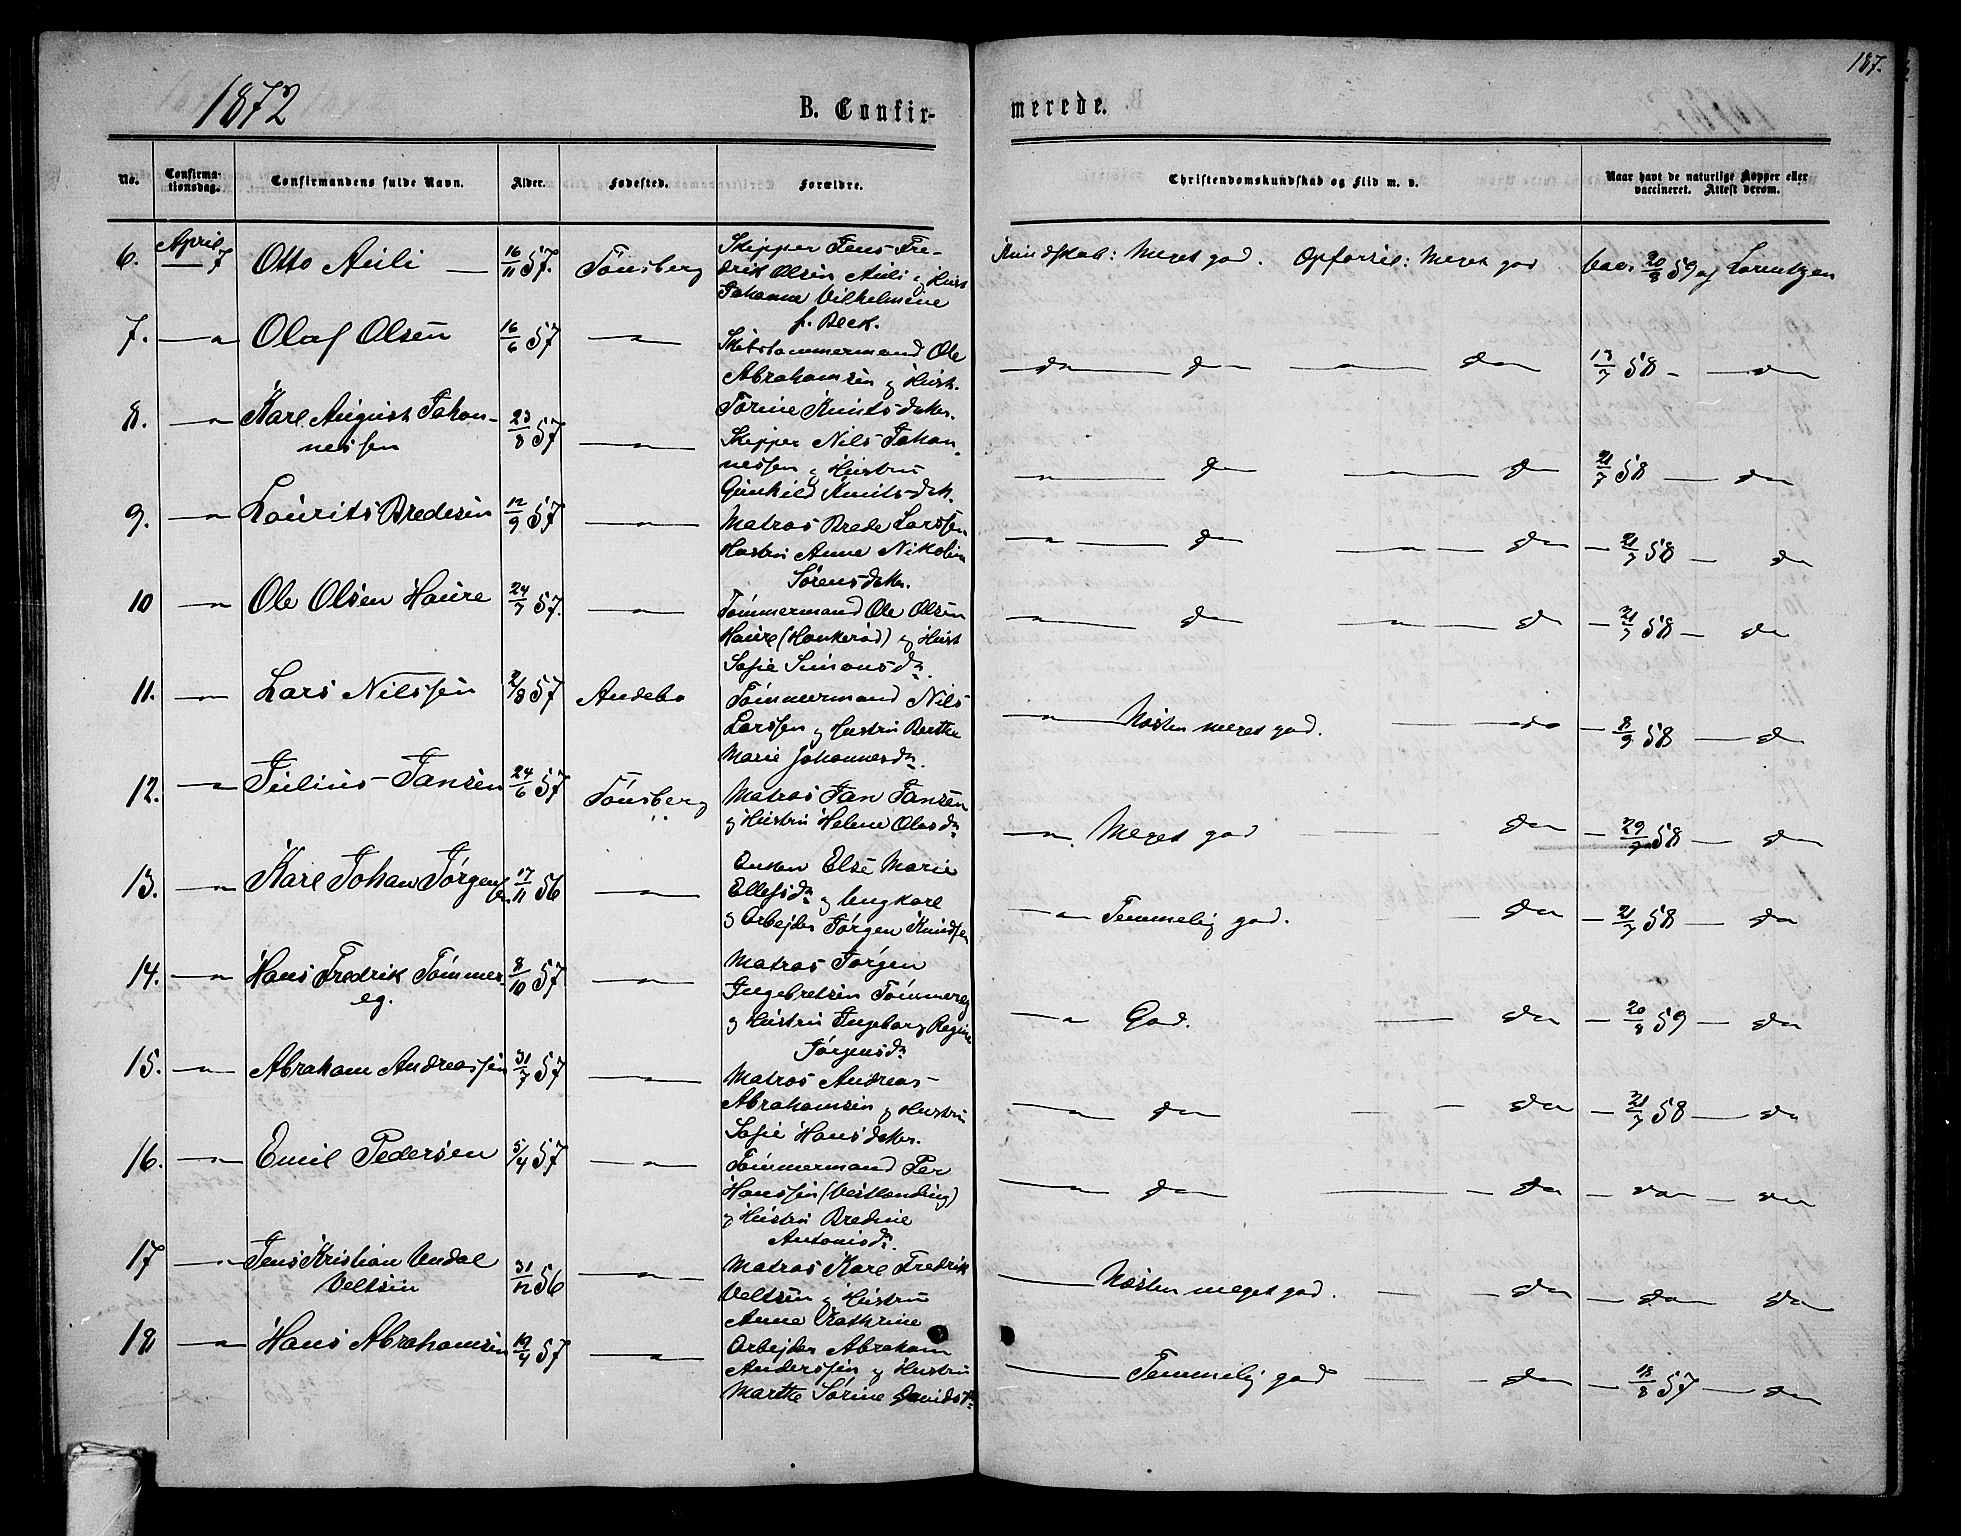 187.
1872
B. Confir-
merede.
No.
Confirma-
tionsdag.
Confirmandens fulde Navn.
Alder.
Fødested.
Forældre.
Christendomskundskab og Flid m. v.
Naar havt de naturlige Kopper eller
vaccineret. Attest derom.
6. April 7 Otto Auli — 16/11 57. Tønsberg
Skipper Jens Fre-
drik Olsen Auli og Hust
Johanne Vilhelmine
f. Beck.
Kundskab: Meget god. Opførsel: Meget god
vac. 20/8 59 af Lorentzen
7. —"— Olaf Olsen 16/6 57 —"—
Skibstømmermand Ole
Abrahamsen og Hust.
Torine Knutsdatter.
do — do — " — do 13/7 58 — do
8. —"— Karl August Johan-
nessen 23/8 57 —"—
Skipper Nils Johan-
nessen og Hustru
Gunhild Knutsdatt.
—"— do —"— do 21/7 58 — do
9. —"— Lourits Bredesen 12/9 57 —"—
Matros Brede Larssen
Hustru Anne Nikoline
Sørensdatter.
—"— do —"— do — 21/7 58 — do
10 —"— Ole Olsen Haure 24/7 57. —"—
Tømmermand Ole Olsen
Haure (Haukerød) og Hust
Sofie Simonsdr.
—"— do —"— do — 21/7 58 — do
11. —"— Lars Nilssen 2/8 57 Andebo
Tømmermand Nils
Larssen og Hustru Berthe
Marie Johannesdr.
—"— Næsten meget god. — do — 8/9 58 — do
12. —"— Julius Jansen 24/6 57 Tønsberg
Matros Jan Jansen
og Hustru Helene Olesdr
—"— Meget god — do — 29/7 58 — do
13. —"— Karl Johan Jørgens-
en 17/11 56 —"—
Enken Else Marie
Ellefsdr og Ungkarl
og Arbejder Jørgen Knudsen
—"— Temmelig god. — do — 21/7 58 — do
14. —"— Hans Fredrik Tømmer-
eg. 8/10 57 —"—
Matros Jørgen
Ingebretsen Tømmereg
og Hustru Ingeborg Regine
Jørgensdr
—"— God. — do — 20/8 59 — do
15. —"— Abraham Andreassen 31/7 57 —"—
Matros Andreas
Abrahamsen og Hustru
Sofie Hansdatter.
—"— do — do — 21/7 58 — do
16. —"— Emil Pedersen 5/4 57 —"—
Tømmermand Per
Hanssen (Vestlending)
og Hustru Bredine
Antonisdr.
—"— do — do — do — do
17 —"— Jens Kristian Undal
Veltsin 31/12 56 —"—
Matros Karl Fredrik
Veltsin og Hustru
Anne Kathrine
— Næsten meget god. — do — do — do
18 —"— Hans Abrahamsen 19/4 57 —"—
Arbejder Abraham
Anderssen og Hustru
Marthe Sørine Davidsdr
— Temmelig god — do — 18/8 57 — do